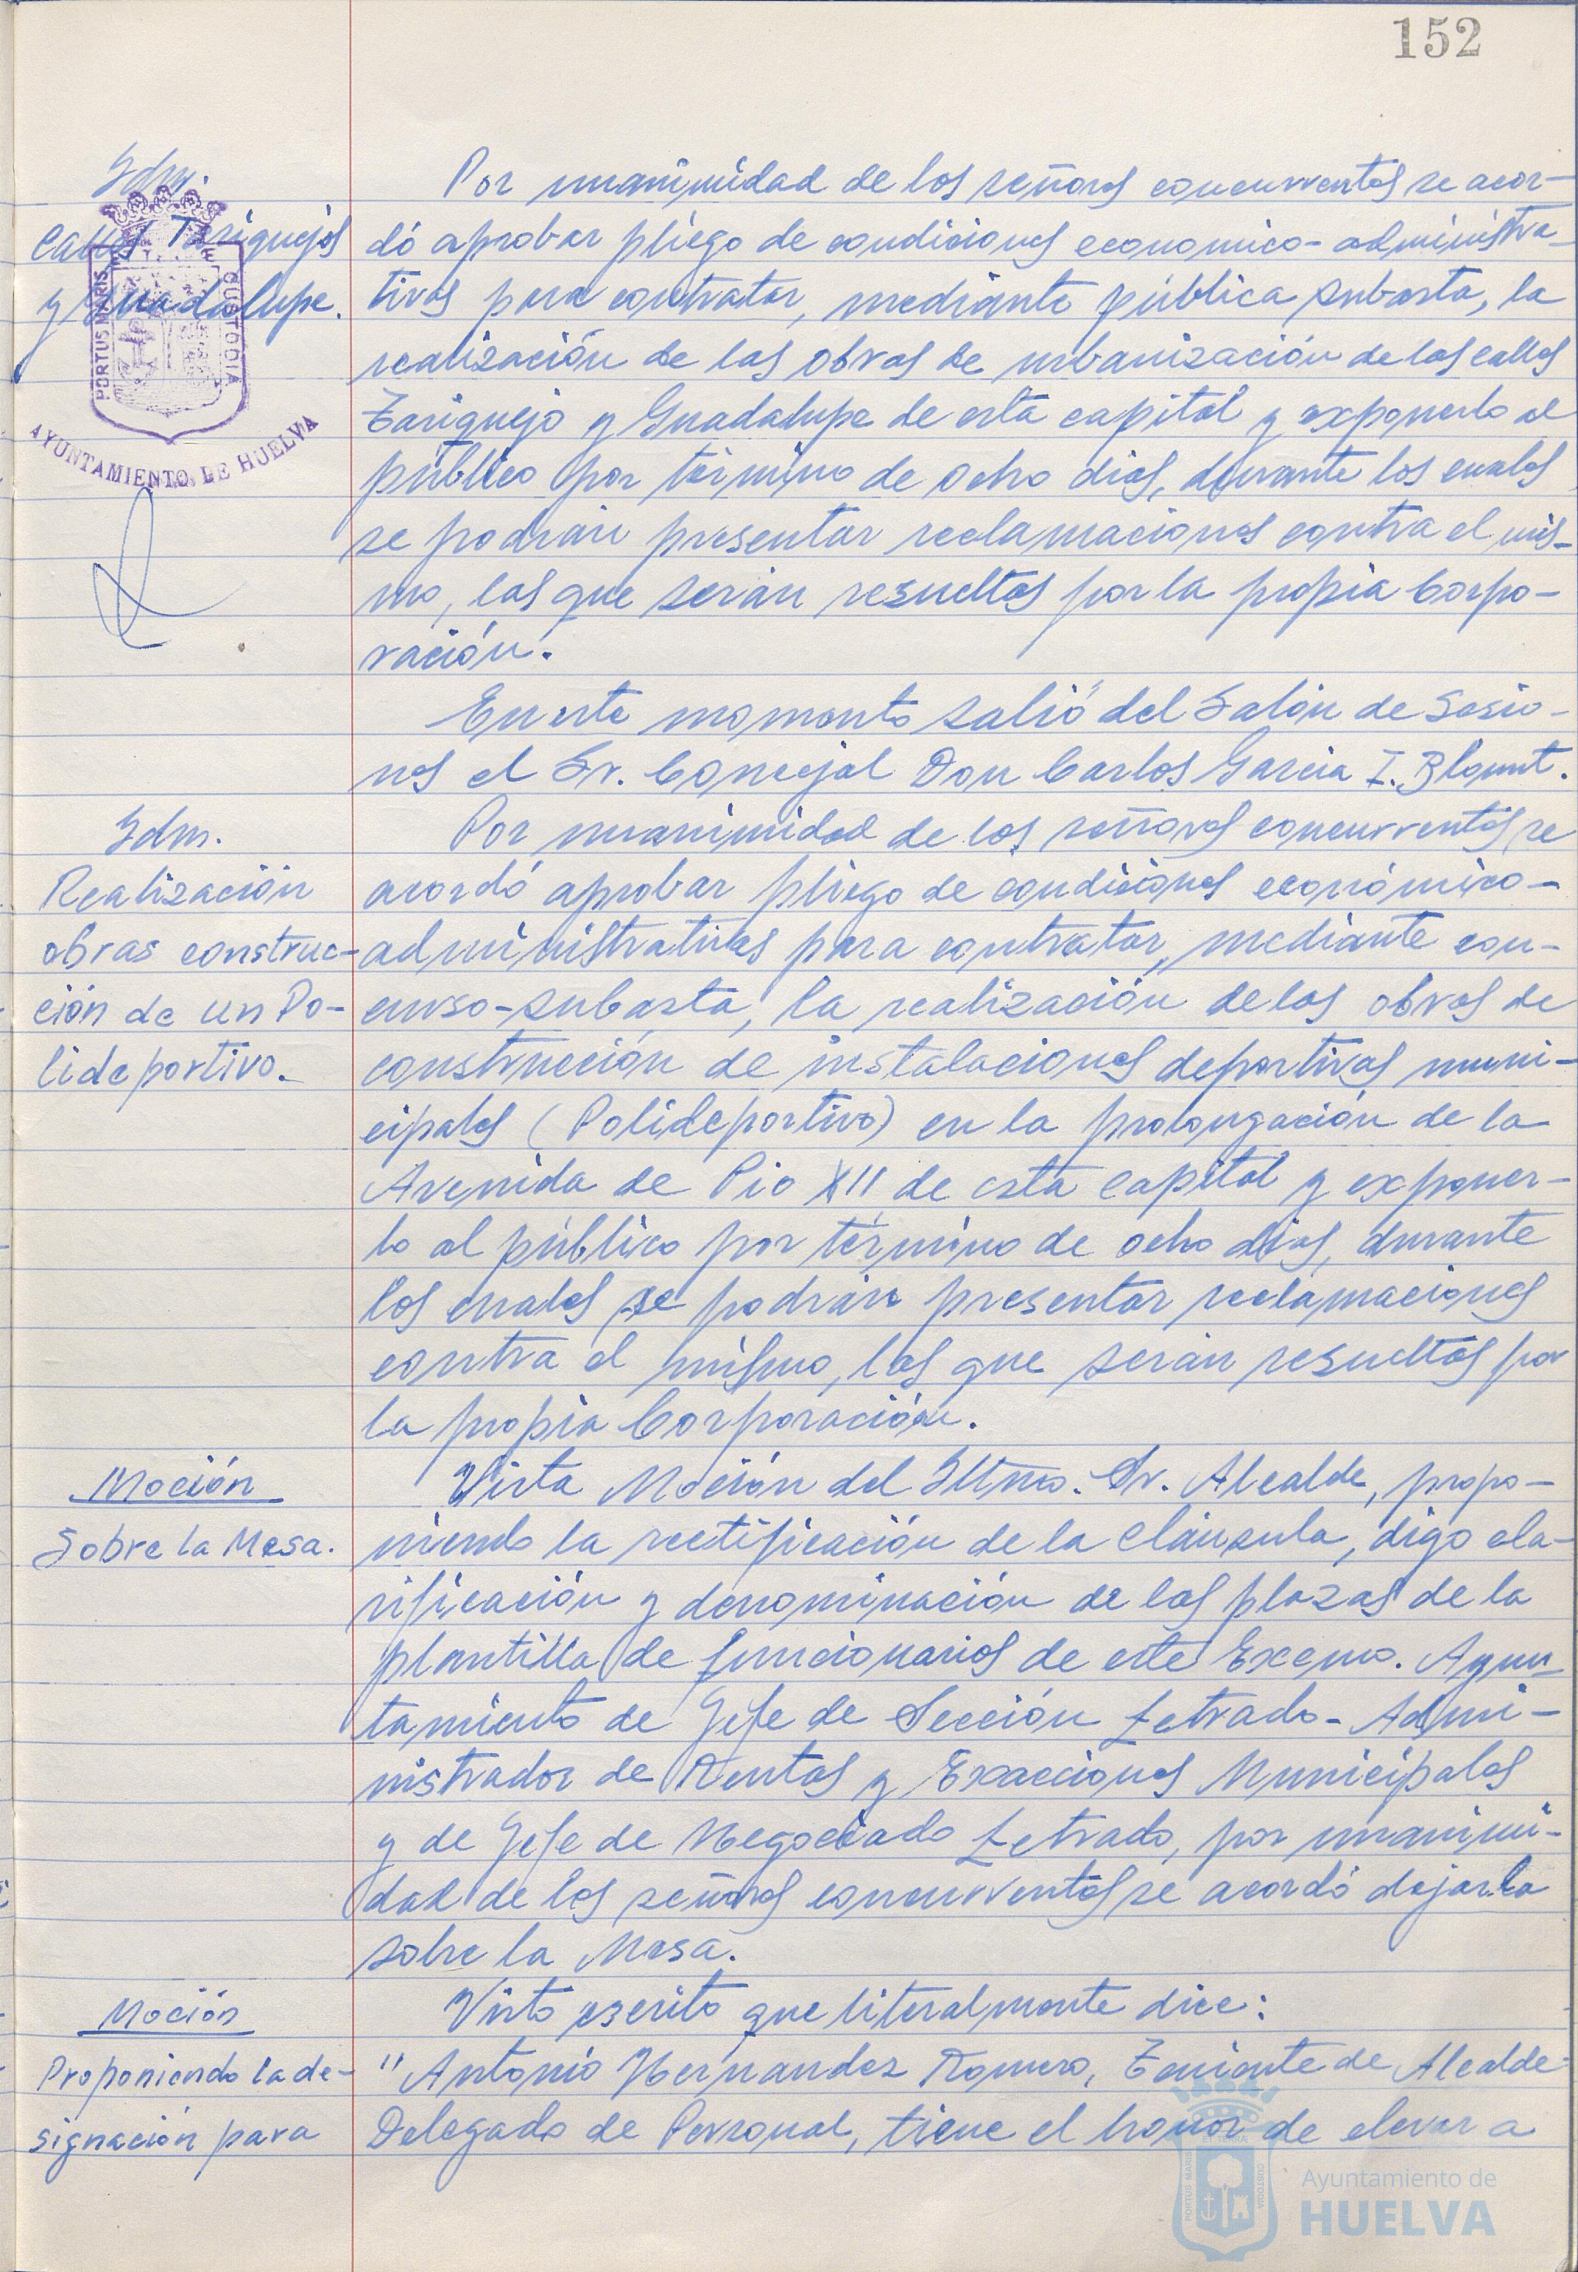 152
Idm.
Calles Tariquejos
y Guadalupe.
PORTUS MARIS CUSTODIA
AYUNTAMIENTO DE HUELVA
Por unanimidad de los señores concurrentes se acor-
dó aprobar pliego de condiciones economico-administra-
tivas para contratar, mediante pública subasta, la
realización de las obras de urbanización de las calles
Tariquejo y Guadalupe de esta capital y exponerlo al
público por término de ocho dias, durante los cuales
se podrán presentar reclamaciones contra el mis-
mo, las que serán resueltas por la propia Corpo-
ración.
En este momento salió del Salón de Sesio-
nes el Sr. Concejal Don Carlos Garcia I. Blount.
Idm.
Realización
obras construc-
ción de un Po-
lideportivo.
Por unanimidad de los señores concurrentes se
acordó aprobar pliego de condiciones económico-
administrativas para contratar, mediante con-
curso-subasta, la realización de las obras de
construcción de instalaciones deportivas muni-
cipales (Polideportivo) en la prolongación de la
Avenida de Pio XII de esta capital y exponer-
lo al público por término de ocho dias, durante
los cuales se podrán presentar reclamaciones
contra el mismo, las que serán resueltas por
la propia Corporación.
Moción
Sobre la Mesa.
Vista Moción del Iltmo. Sr. Alcalde, propo-
niendo la rectificación de la cláusula, digo cla-
rificación y denominación de las plazas de la
plantilla de funcionarios de este Excmo. Ayun-
tamiento de Jefe de Sección Letrado-Admi-
nistrador de Rentas y Exacciones Municipales
y de Jefe de Negociado Letrado, por unanimi-
dad de los señores concurrentes se acordó dejarla
sobre la Mesa.
Moción
Proponiendo la de-
signación para
Visto escrito que literalmente dice:
"Antonio Hernandez Romero, Teniente de Alcalde
Delegado de Personal, tiene el honor de elevar a
Ayuntamiento de
HUELVA